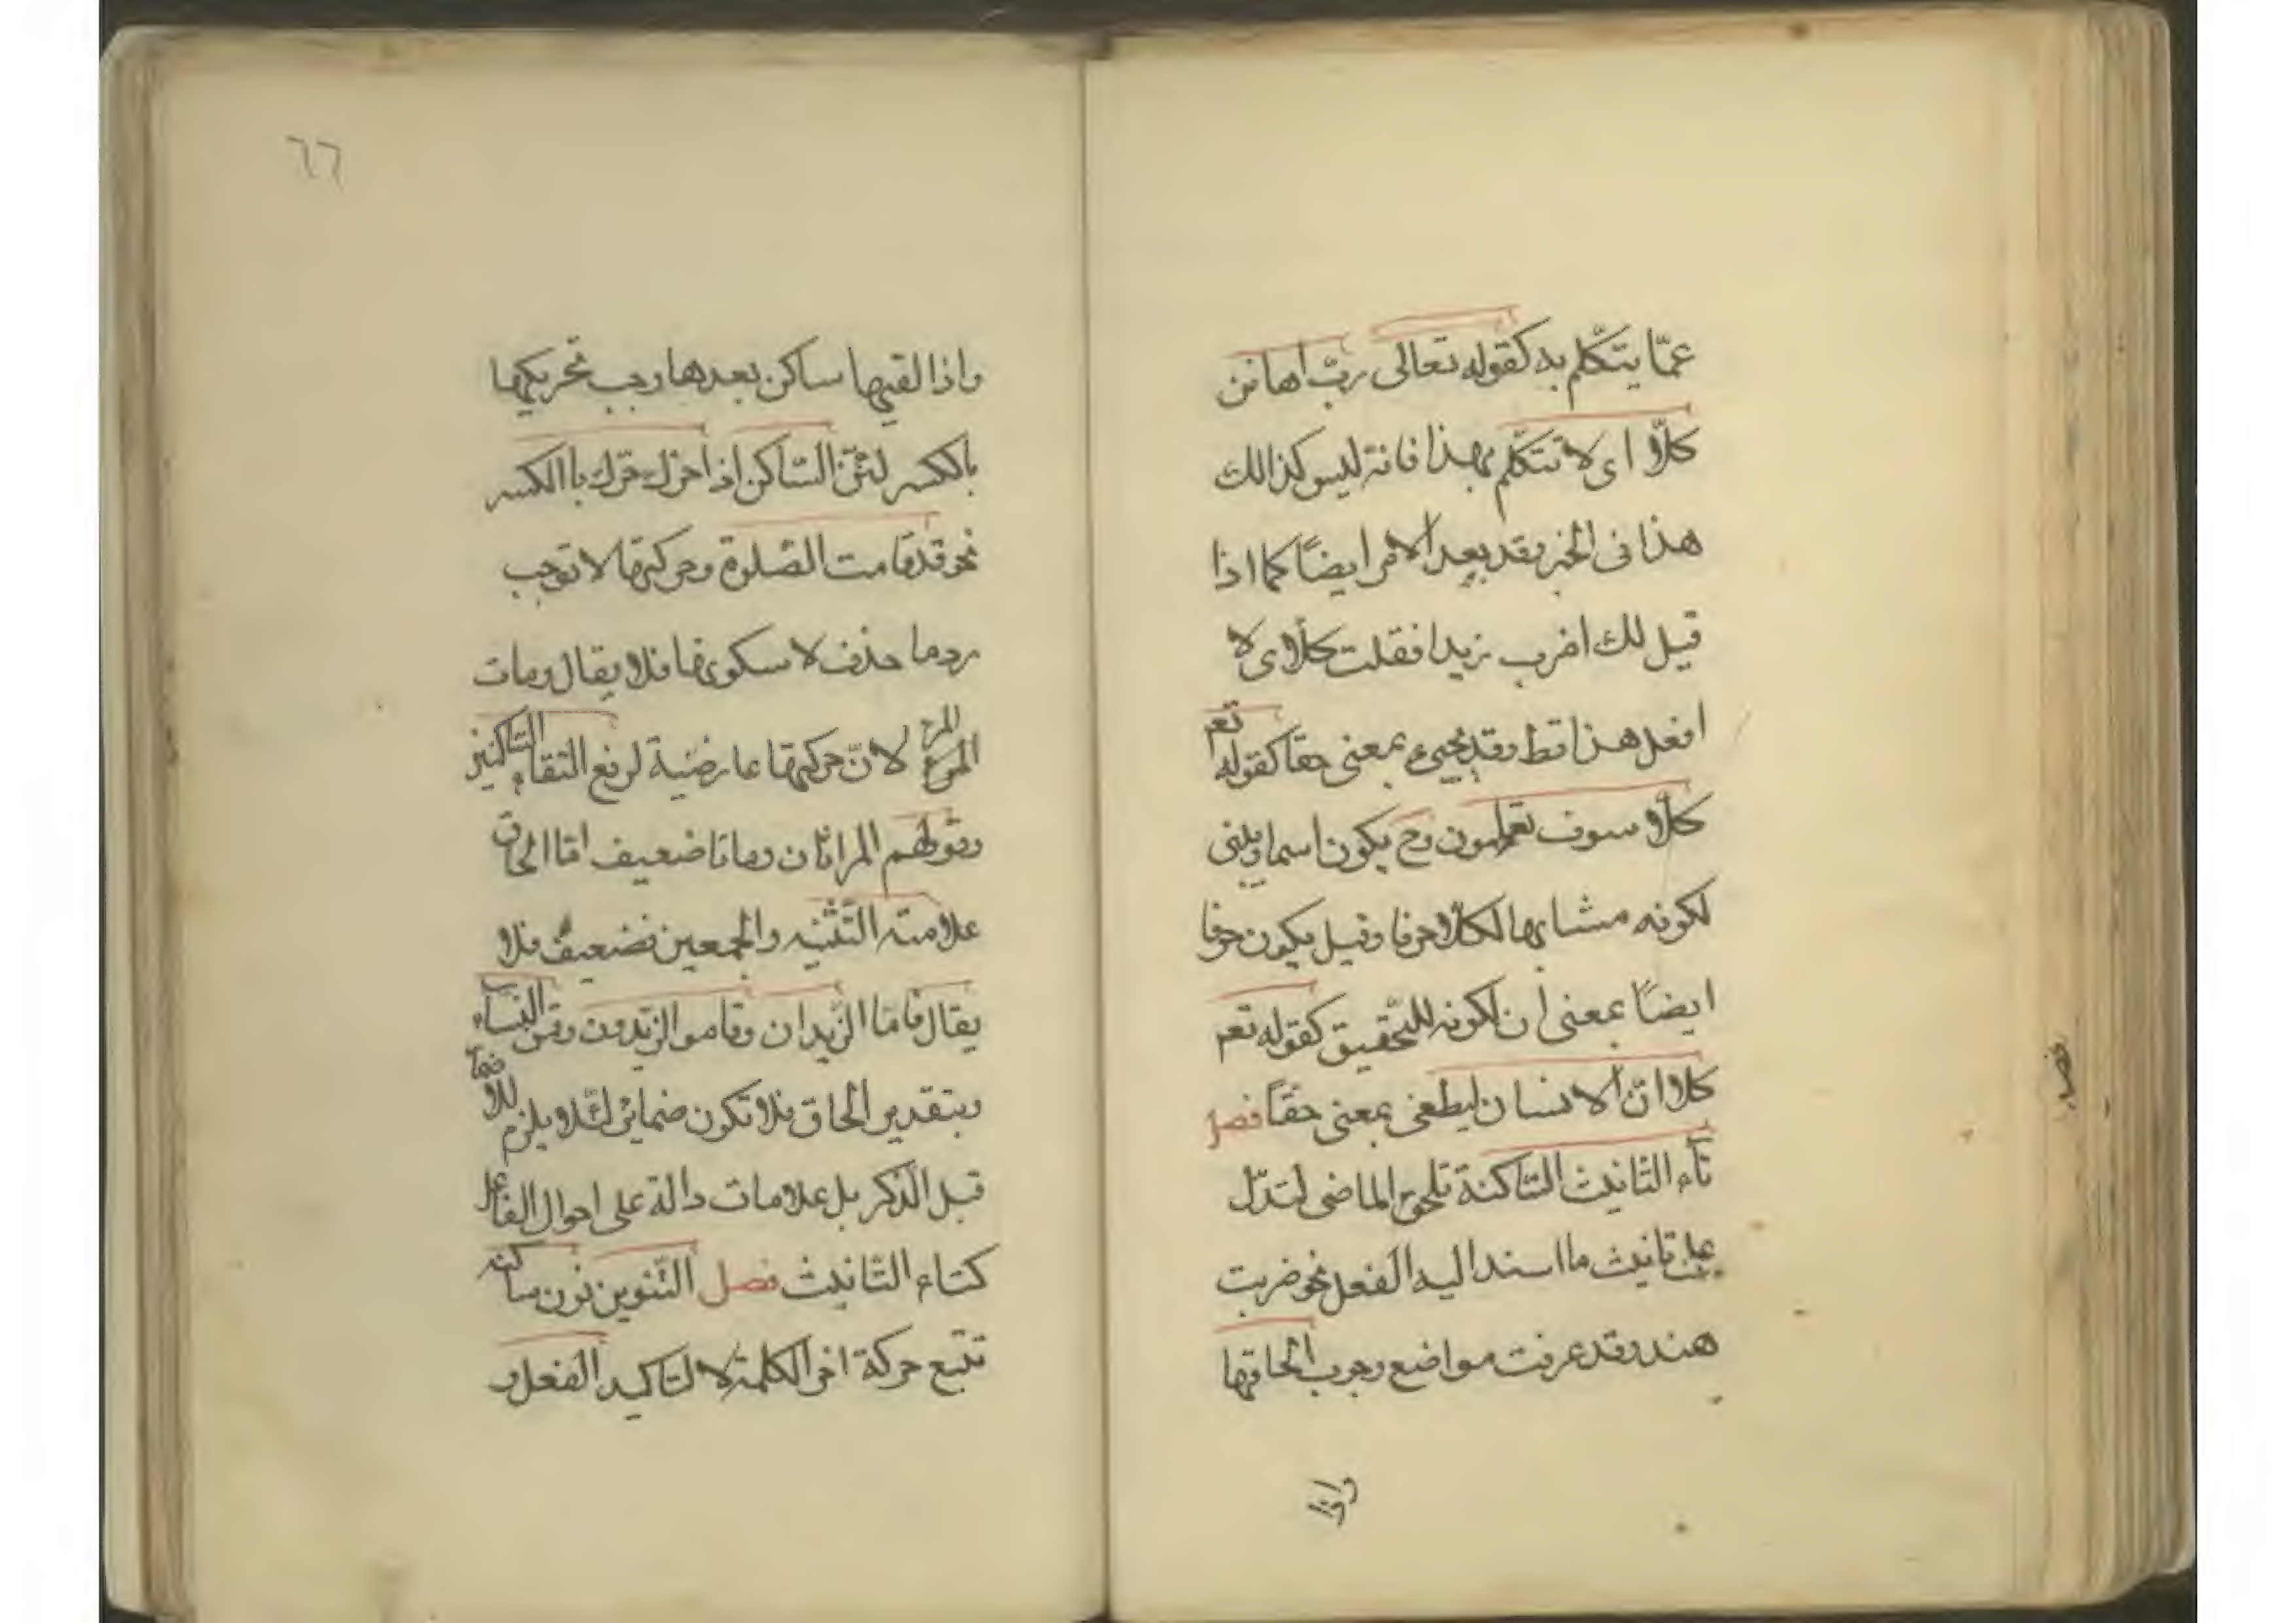 عمّا يتكّلم به كقوله تعالى ربّ اهانن
كلّا اى لا تتكلّم بهذا فانه ليس كذالك
هذا فى الخبر وقد بعد الامر ايضًا كما اذا
قيل لك اضرب زيدا فقلت كلّا اى لا
افعل هذا قط وقد يجيىء بمعنى حقا كقوله تعم
كلّا سوف تعلمون وح يكون اسما ويبنى
لكونه مشابها لكلّا حرفا وقيل يكون حرفا
ايضًا بمعنى ان لكونه للتحقيق كقوله تعم
كلا انّ الانسان ليطغى بمعنى حقّاً فصل
تاء التانيث السّاكنة تلحق الماضى لتدّل
على تانيث ما اسند اليه الفعل نحو ضربت
هند وقد عرفت مواضع وجوب الحاقها
واذا
فصد
٦٦
واذا لقيها ساكن بعدها وجب تحريكها
بالكسر لئنّ السّاكن اذا حرّك حرّك باالكسر
نحو قد قامت الصّلوة وحركتها لا توجب
رد ما حذف لا سكونها فلا يقال رمات
المرء لانّ حركتها عارضية لرفع التقاء السّاكنين
وقولهم المراتان رماتا ضعيف امّا الحاق
علامته التّثنيه والجمعين فضعيف فلا
يقال قامّا الزّيدان وقاموا الزّيدون وقمن النساء
وبتقدير الحاق فلا تكون ضمائر لئلّا يلزم
قبل الذّكر بل علامات دالة على احوال الفاعل
كتاء التانيث فصل التّنوين نون ساكنه
تتبع حركة اخر الكلمة لا لتاكيد الفعل و